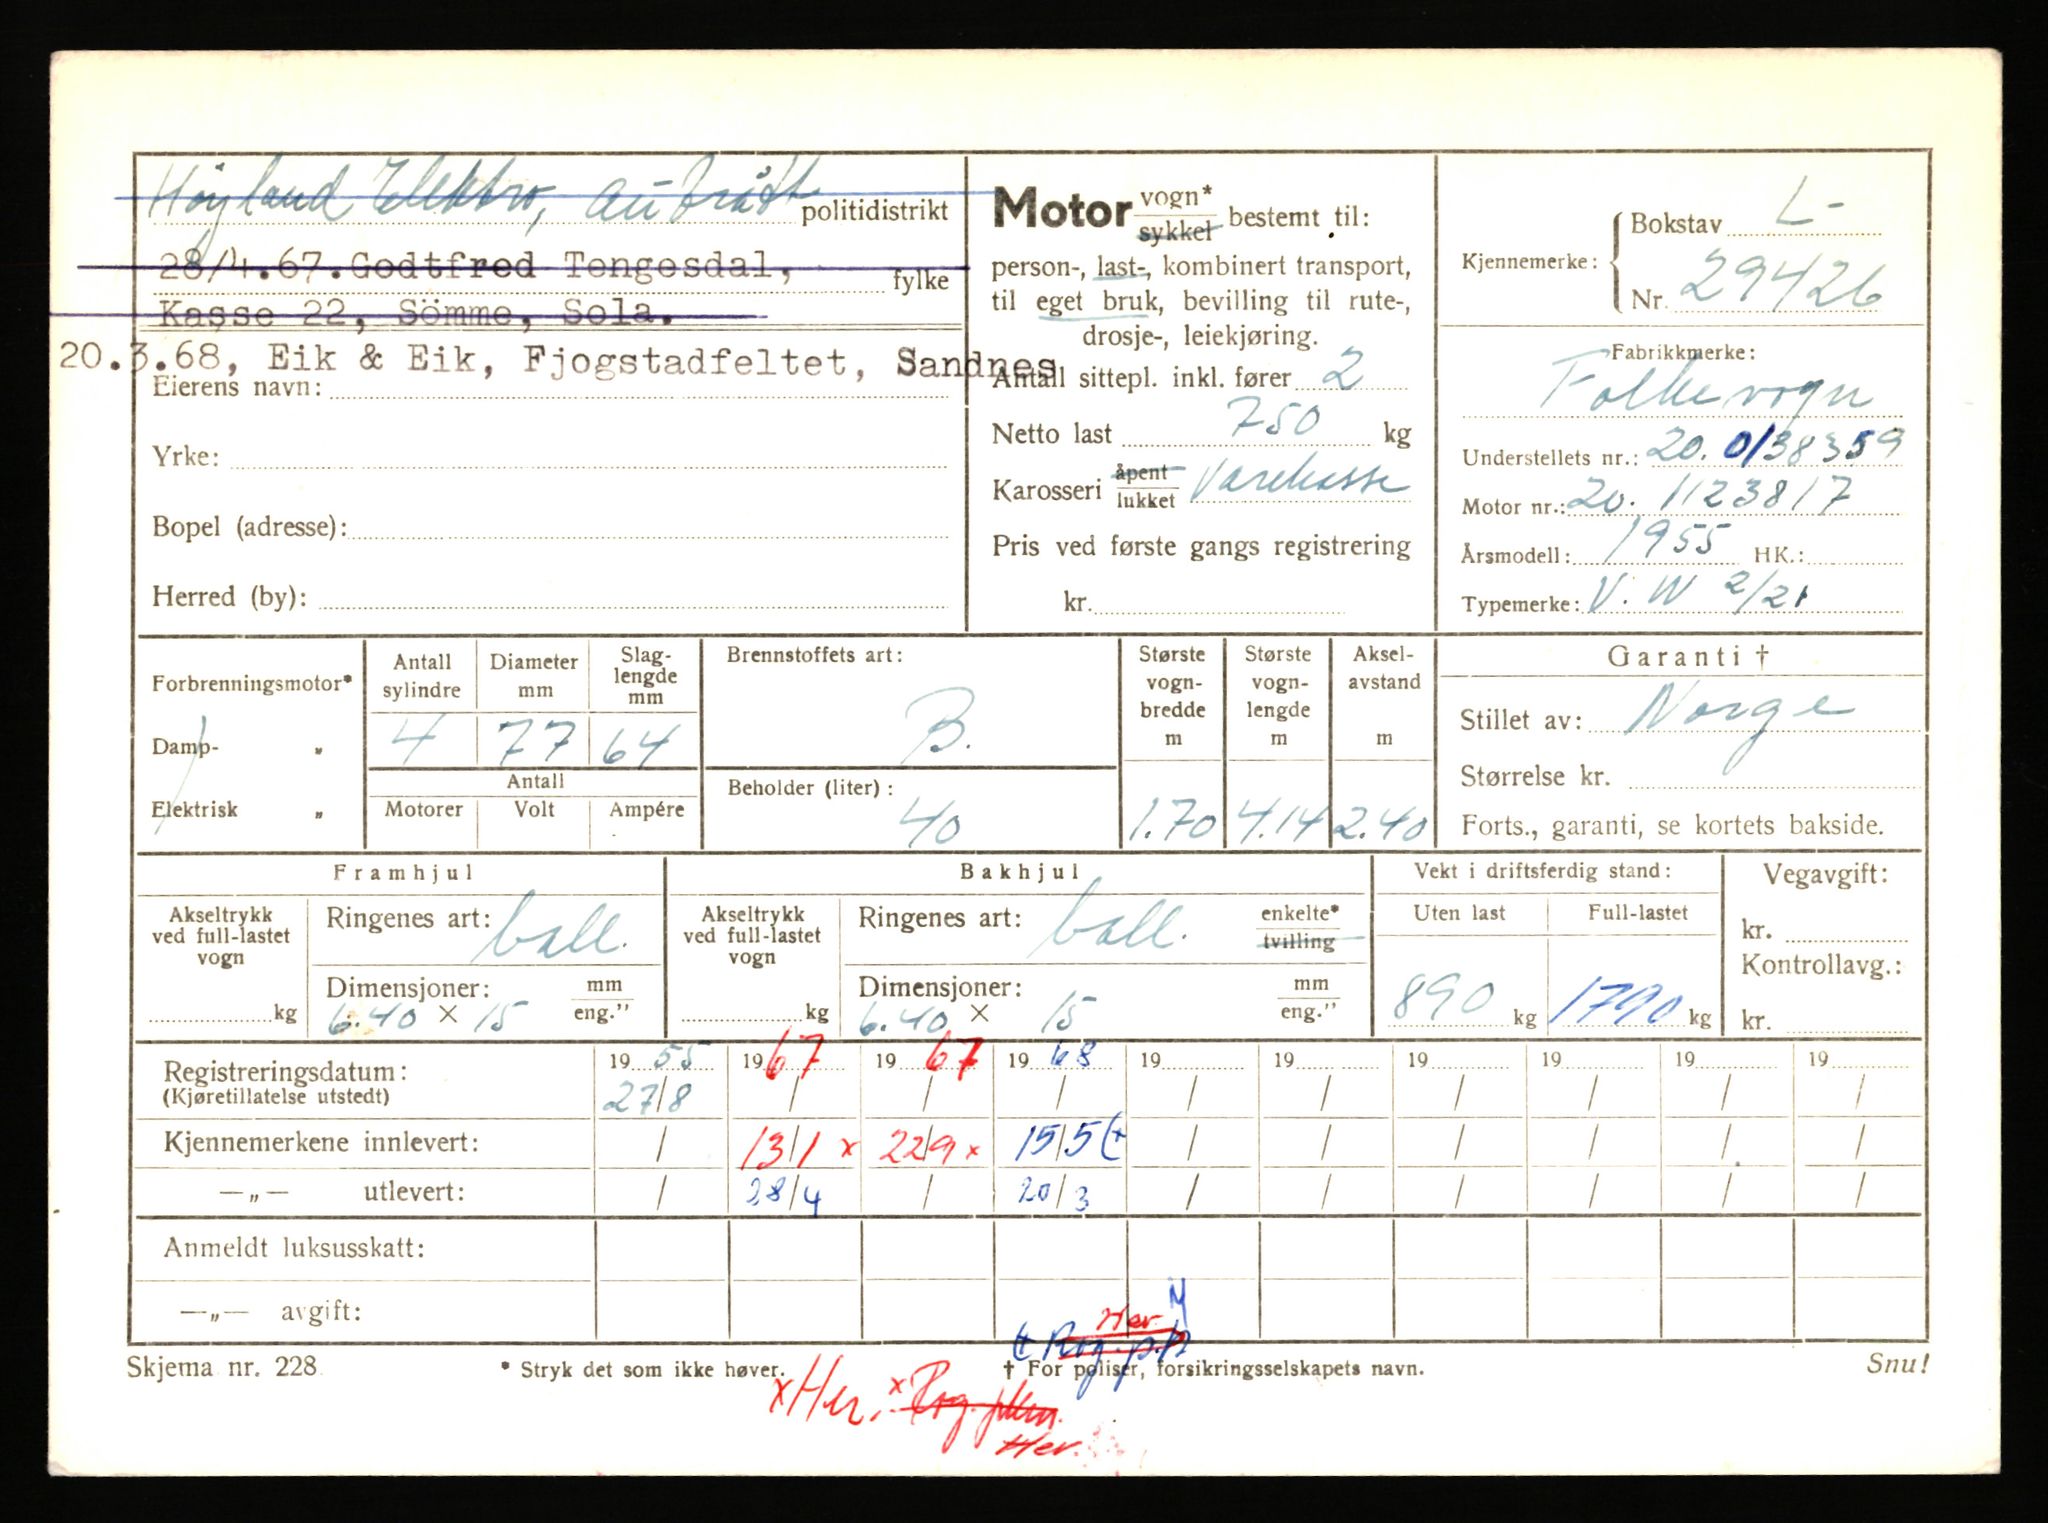 Höyland Elektro, Austrått politidistrikt
28/4.67. Godtfred Tengesdal, fylke
Kasse 22, Sömme, Sola.
20.3.68, Eik & Eik, Fjogstadfeltet, Sandnes
Eierens navn:
Yrke:
Bopel (adresse):
Herred (by):
Motor vogn* sykkel bestemt til:
person-, last-, kombinert transport,
til eget bruk, bevilling til rute-,
drosje-, leiekjøring.
Antall sittepl. inkl. fører 2
Netto last 750 kg
Karosseri åpent lukket Varekasse
Pris ved første gangs registrering
kr.
Kjennemerke: Bokstav L-
Nr. 29426
Fabrikkmerke:
Folkevogn
Understellets nr.: 20. 0138359
Motor nr.: 20. 1123817
Årsmodell: 1955 HK.:
Typemerke: V.W 2/21
Forbrenningsmotor*
Damp- "
Elektrisk "
Antall sylindre
4
Diameter mm
77
Slag-lengde mm
64
Antall
Motorer Volt Ampére
Brennstoffets art:
B.
Beholder (liter):
40
Største vogn-bredde m
1.70
Største vogn-lengde m
4.14
Aksel-avstand m
2.40
Garanti †
Stillet av: Norge
Størrelse kr.
Forts., garanti, se kortets bakside.
Framhjul
Akseltrykk ved full-lastet vogn
kg
Ringenes art: ball.
Dimensjoner: mm eng."
6.40 × 15
Bakhjul
Akseltrykk ved full-lastet vogn
kg
Ringenes art: ball. enkelte* tvilling
Dimensjoner: mm eng."
6.40 × 15
Vekt i driftsferdig stand:
Uten last Full-lastet
890 kg 1790 kg
Vegavgift:
kr.
Kontrollavg.:
kr.
Registreringsdatum: 19 55 19 67 19 67 19 68 19 19 19 19 19 19
(Kjøretillatelse utstedt) 27/8 / / / / / / / / /
Kjennemerkene innlevert: / 13/1 x 22/9 x 15/5 (+ / / / / / /
—„— utlevert: / 28/4 / 20/3 / / / / / /
Anmeldt luksusskatt:
—„— avgift:
Her.
(+ Rog. p.p
Skjema nr. 228 * Stryk det som ikke høver. † For poliser, forsikringsselskapets navn. Snu!
x Her. x Rog.
Her.